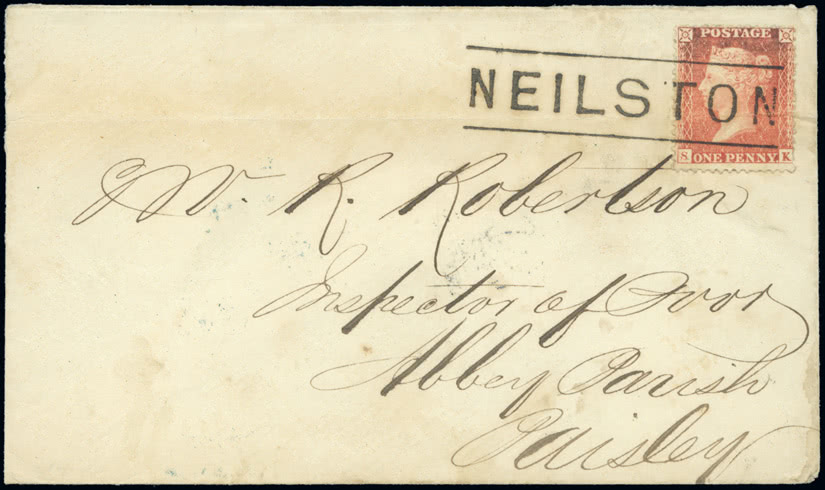 POSTAGE
NEILSTON
S ONE PENNY K
Mr. R. Robertson
Inspector of Poor
Abbey Parish
Paisley